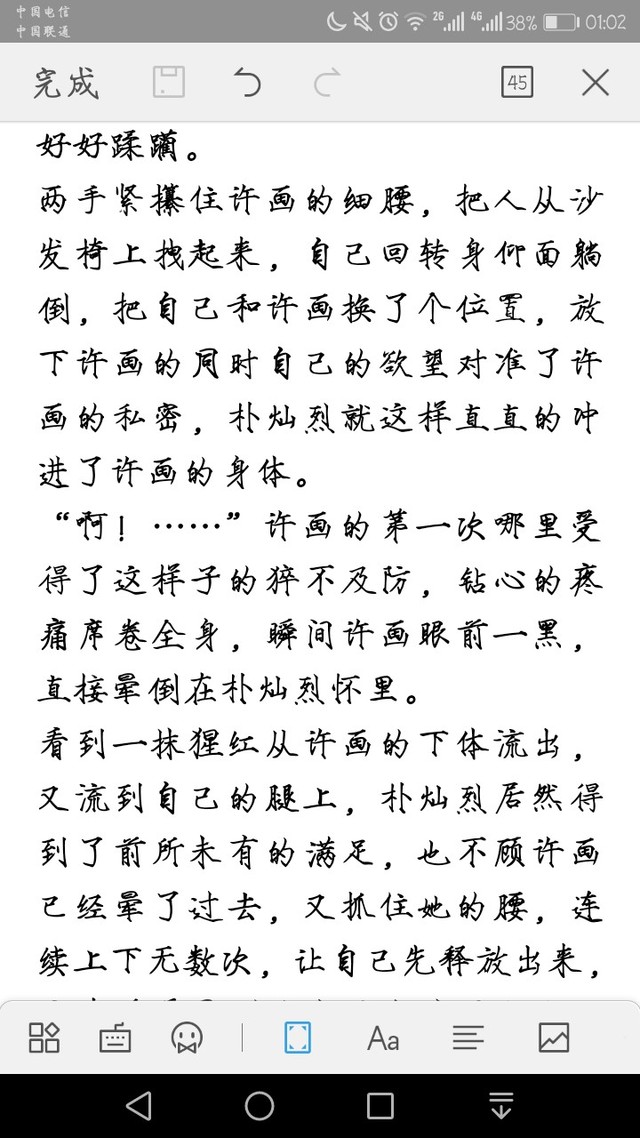 中国电信
中国联通
2G 4G 38% 01:02
完成 45
好好蹂躏。
两手紧攥住许画的细腰，把人从沙
发椅上拽起来，自己回转身仰面躺
倒，把自己和许画换了个位置，放
下许画的同时自己的欲望对准了许
画的私密，朴灿烈就这样直直的冲
进了许画的身体。
“啊！……”许画的第一次哪里受
得了这样子的猝不及防，钻心的疼
痛席卷全身，瞬间许画眼前一黑，
直接晕倒在朴灿烈怀里。
看到一抹猩红从许画的下体流出，
又流到自己的腿上，朴灿烈居然得
到了前所未有的满足，也不顾许画
已经晕了过去，又抓住她的腰，连
续上下无数次，让自己先释放出来，
Aa